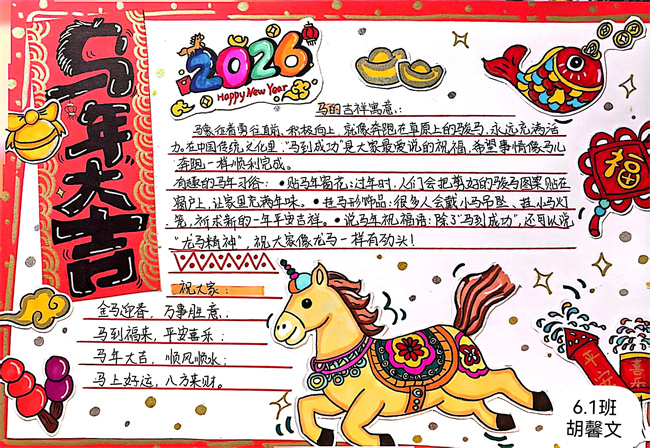 马年大吉
2026
Happy New Year
马的吉祥寓意:
马象征着勇往直前、积极向上,就像奔跑在草原上的骏马,永远充满活
力。在中国传统文化里,“马到成功”是大家最爱说的祝福,希望事情像马儿
奔跑一样顺利完成。
有趣的马年习俗:·贴马年窗花:过年时,人们会把剪好的骏马图案贴在
窗户上,让家里充满年味。·挂马形饰品:很多人会戴小马吊坠、挂小马灯
笼,祈求新的一年平安吉祥。·说马年祝福语:除了“马到成功”,还可以说
“龙马精神”,祝大家像龙马一样有劲头!
福
祝大家:
金马迎春,万事胜意;
马到福来,平安喜乐;
马年大吉,顺风顺水;
马上好运,八方来财。
平安
喜乐
6.1班
胡馨文